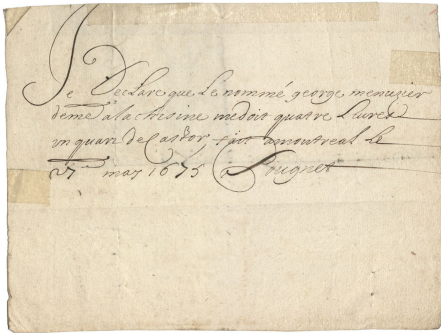 Je Declare que Le nommé george menuzier
demt a la chisine me doit quatre Livres
un quart de Castor fait a montreal le
27e may 1675 Pougnet